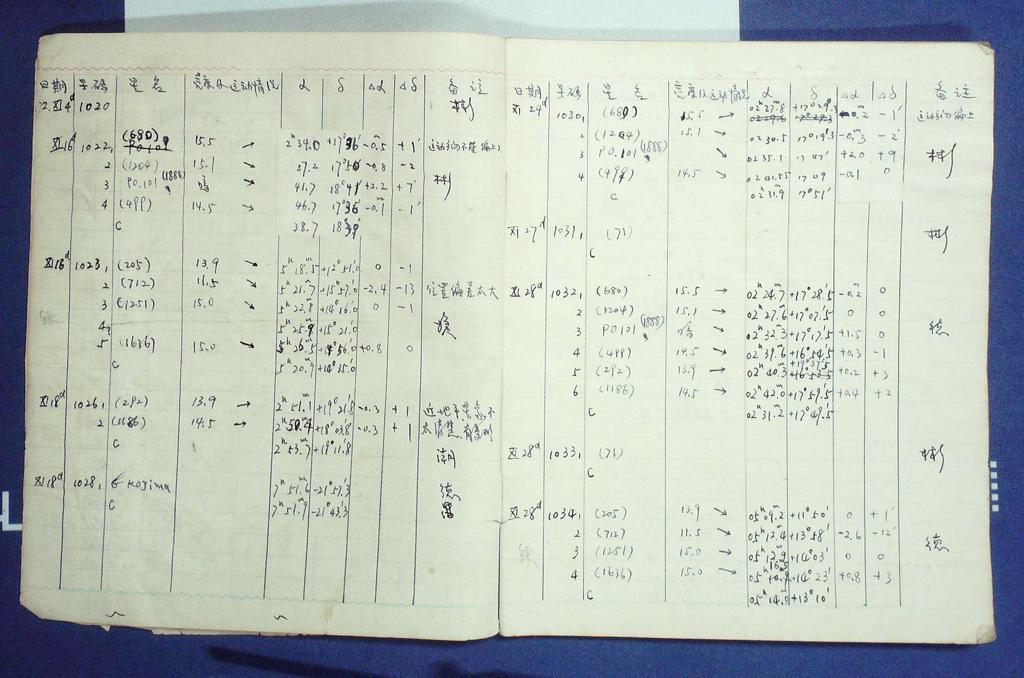 日期 号码 星名 亮度及运动情况 α δ Δα Δδ 备注
XI 4ᵈ 1020 彬
XI 16ᵈ 1022, (680) 15.5 → 2ʰ34.0 +17°36' -0.5 +1'
2 (1204) 15.1 → 37.2 17°50' -0.8 -2
3 PO.101 (1888) 暗 ↘ 41.7 18°41' +2.2 +7' 彬
4 (499) 14.5 → 46.7 17°36' -0.1 -1'
C 38.7
XI 16ᵈ 1023, (205) 13.9 → 5ʰ18.5ᵐ +12°51.'0 0 -1
2 (712) 11.5 → 5ʰ21.7ᵐ +15°57.'0 -2.4 -13 位置偏差太大
3 (1251) 15.0 → 5ʰ22.8ᵐ +14°16.'0 0 -1
4? 5ʰ25.9ᵐ +15°21.'0
5 (1636) 15.0 → 5ʰ26.5ᵐ +14°56.'0 +0.8 0
C 5ʰ20.9ᵐ +14°35.0
XI 18ᵈ 1026, (292) 13.9 → 2ʰ51.1ᵐ +19°21.'8 -0.3 +1
2 (1186) 14.5 → 2ʰ50.4ᵐ +18°03.'8 -0.3 +1
C 2ʰ53.7ᵐ +19°11.'8
XI 18ᵈ 1028, Kojima 7ʰ51.6ᵐ -21°57.'3 德
C 7ʰ51.9ᵐ -21°43.'3
日期 号码 星名 亮度及运动情况 α δ Δα Δδ 备注
XI 24ᵈ 1030, (680) 15.5 → 02ʰ27.8 +17°29.'3 -0.2 -1' 运动方向偏上
2 (1204) 15.1 → 02 30.5 17°19.'3 -0.3 -2'
3 PO.101 (1888) 02 35.1 17°47' +2.0 +9 彬
4 (499) 14.5 → 02 41.55 17°09 -0.1 0
C 02 31.9 17°51'
XI 27ᵈ 1031, (71) 彬
C
XI 28ᵈ 1032, (680) 15.5 → 02ʰ24.7ᵐ +17°28.'5 -0.2 0
2 (1204) 15.1 → 02ʰ27.6ᵐ +17°07.'5 0 0
3 PO101 (1888) 暗 ↘ 02ʰ32.3ᵐ +17°17.'5 +1.5 0 德
4 (499) 14.5 → 02ʰ39.6ᵐ +16°54.'5 +0.3 -1
5 (292) 13.9 → 02ʰ40.3ᵐ +19°37.'5 +0.2 +3
6 (1186) 14.5 → 02ʰ42.0ᵐ +17°59.'5 +0.4 +2
C 02ʰ31.2ᵐ +17°49.'5
XI 28ᵈ 1033, (71) 彬
C
XI 28ᵈ 1034, (205) 13.9 → 05ʰ09.2ᵐ +11°50' 0 +1'
2 (712) 11.5 → 05ʰ12.4ᵐ +13°58' -2.6 -12'
3 (1251) 15.0 → 05ʰ12.9ᵐ +14°03' 0 0 德
4 (1636) 15.0 → 05ʰ16.5ᵐ +14°23' +0.8 +3
C 05ʰ14.0ᵐ +13°10'